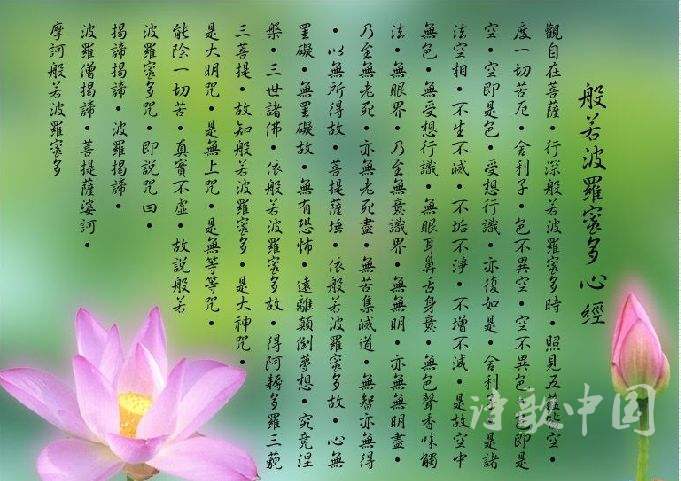 般若波羅蜜多心經
觀自在菩薩•行深般若波羅蜜多時•照見五蘊皆空•
度一切苦厄•舍利子•色不異空•空不異色•色即是
空•空即是色•受想行識•亦復如是•舍利子•是諸
法空相•不生不滅•不垢不淨•不增不減•是故空中
無色•無受想行識•無眼耳鼻舌身意•無色聲香味觸
法•無眼界•乃至無意識界•無無明•亦無無明盡•
乃至無老死•亦無老死盡•無苦集滅道•無智亦無得
•以無所得故•菩提薩埵•依般若波羅蜜多故•心無
罣礙•無罣礙故•無有恐怖•遠離顛倒夢想•究竟涅
槃•三世諸佛•依般若波羅蜜多故•得阿耨多羅三藐
三菩提•故知般若波羅蜜多•是大神咒•
是大明咒•是無上咒•是無等等咒•
能除一切苦•真實不虛•故說般若
波羅蜜多咒•即說咒曰•
揭諦揭諦•波羅揭諦•
波羅僧揭諦•菩提薩婆訶•
摩訶般若波羅蜜多
诗歌中国